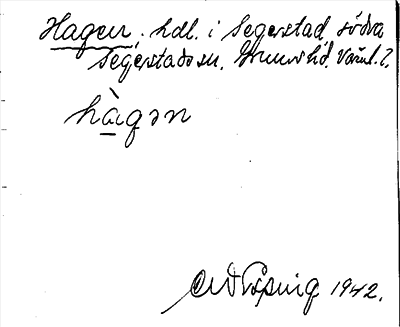 Hagen, hdl. i Segerstad, södra
Segerstads sn, Grums hd, Värml.
hàgən
1942.